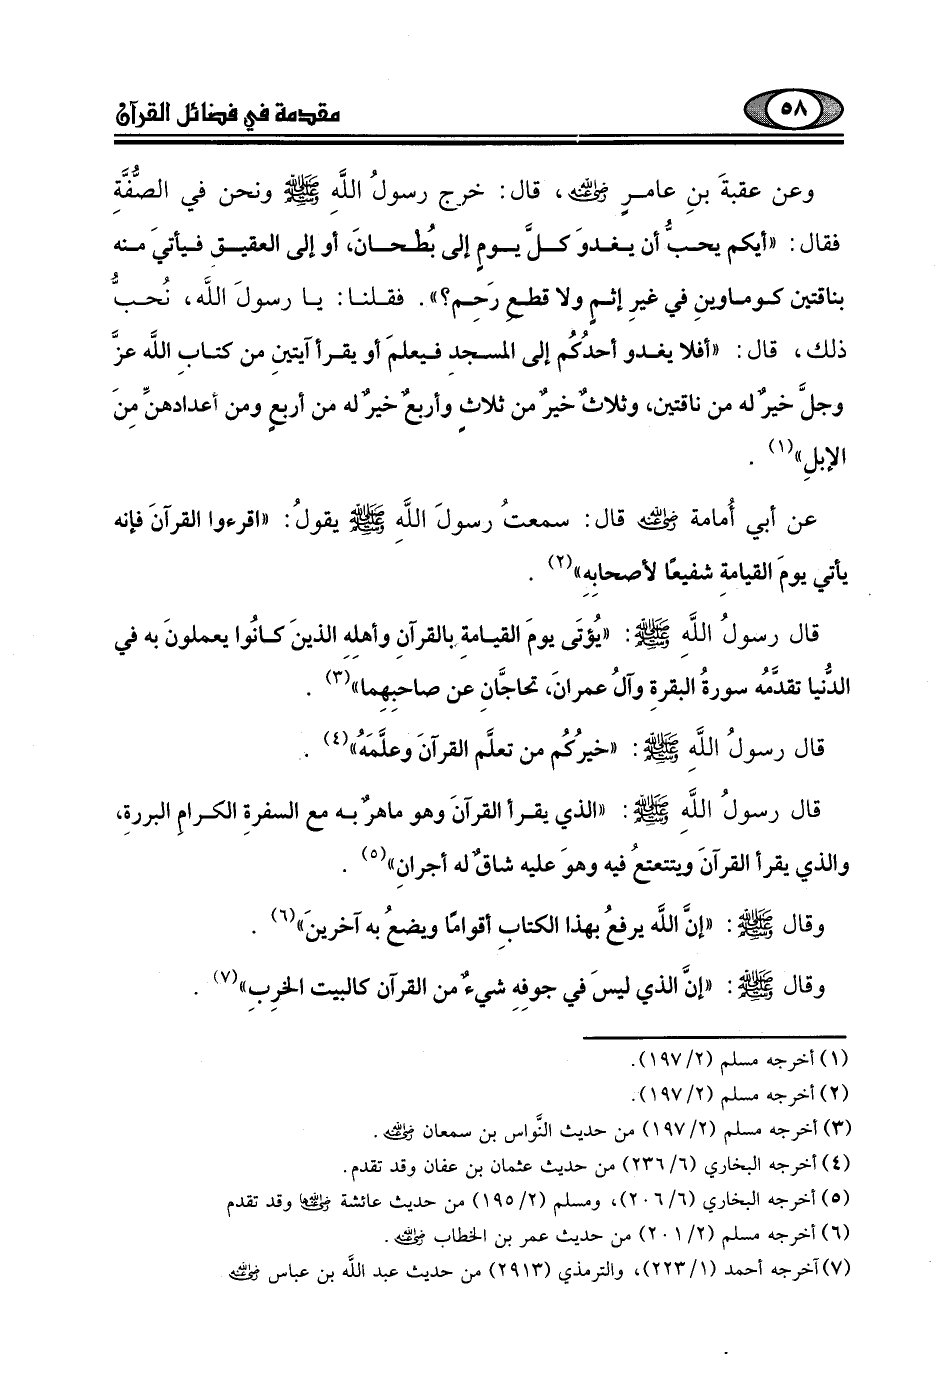 ٥٨
مقدمة في فضائل القرآن
وعن عقبةَ بنِ عامرٍ رضي الله عنه، قال: خرج رسولُ اللَّهِ ﷺ ونحن في الصُّفَّةِ
فقال: «أيكم يحبُّ أن يغدوَ كلَّ يومٍ إلى بُطْحانَ، أو إلى العقيقِ فيأتيَ منه
بناقتين كوماوينِ في غيرِ إثمٍ ولا قطعِ رَحِمٍ؟». فقلنا: يا رسولَ اللَّه، نُحبُّ
ذلك، قال: «أفلا يغدو أحدُكُم إلى المسجدِ فيعلمَ أو يقرأ آيتينِ من كتابِ اللَّه عزَّ
وجلَّ خيرٌ له من ناقتين، وثلاثٌ خيرٌ من ثلاثٍ وأربعٌ خيرٌ له من أربعٍ ومن أعدادهنَّ مِنَ
الإبلِ»(١) .
عن أبي أُمامة رضي الله عنه قال: سمعتُ رسولَ اللَّهِ ﷺ يقولُ: «اقرءوا القرآنَ فإنه
يأتي يومَ القيامةِ شفيعًا لأصحابِهِ»(٢) .
قال رسولُ اللَّهِ ﷺ: «يُؤتَى يومَ القيامةِ بالقرآنِ وأهلِهِ الذينَ كانُوا يعملونَ به في
الدُّنيا تقدَّمُه سورةُ البقرةِ وآلُ عمرانَ، تحاجَّانِ عن صاحبِهِما»(٣) .
قال رسولُ اللَّهِ ﷺ: «خيرُكُم من تعلَّم القرآنَ وعلَّمَهُ»(٤) .
قال رسولُ اللَّهِ ﷺ: «الذي يقرأ القرآنَ وهو ماهرٌ به مع السفرةِ الكرامِ البررةِ،
والذي يقرأ القرآنَ ويتتعتعُ فيه وهوَ عليه شاقٌ له أجرانِ»(٥) .
وقال ﷺ: «إنَّ اللَّه يرفعُ بهذا الكتابِ أقوامًا ويضعُ به آخرينَ»(٦) .
وقال ﷺ: «إنَّ الذي ليسَ في جوفِهِ شيءٌ من القرآن كالبيت الخرِبِ»(٧) .
(١) أخرجه مسلم (١٩٧/٢).
(٢) أخرجه مسلم (١٩٧/٢).
(٣) أخرجه مسلم (١٩٧/٢) من حديث النَّواس بن سمعان رضي الله عنه .
(٤) أخرجه البخاري (٢٣٦/٦) من حديث عثمان بن عفان وقد تقدم.
(٥) أخرجه البخاري (٢٠٦/٦)، ومسلم (١٩٥/٢) من حديث عائشة رضي الله عنها وقد تقدم
(٦) أخرجه مسلم (٢٠١/٢) من حديث عمر بن الخطاب رضي الله عنه .
(٧) أخرجه أحمد (٢٢٣/١)، والترمذي (٢٩١٣) من حديث عبد اللَّه بن عباس رضي الله عنه